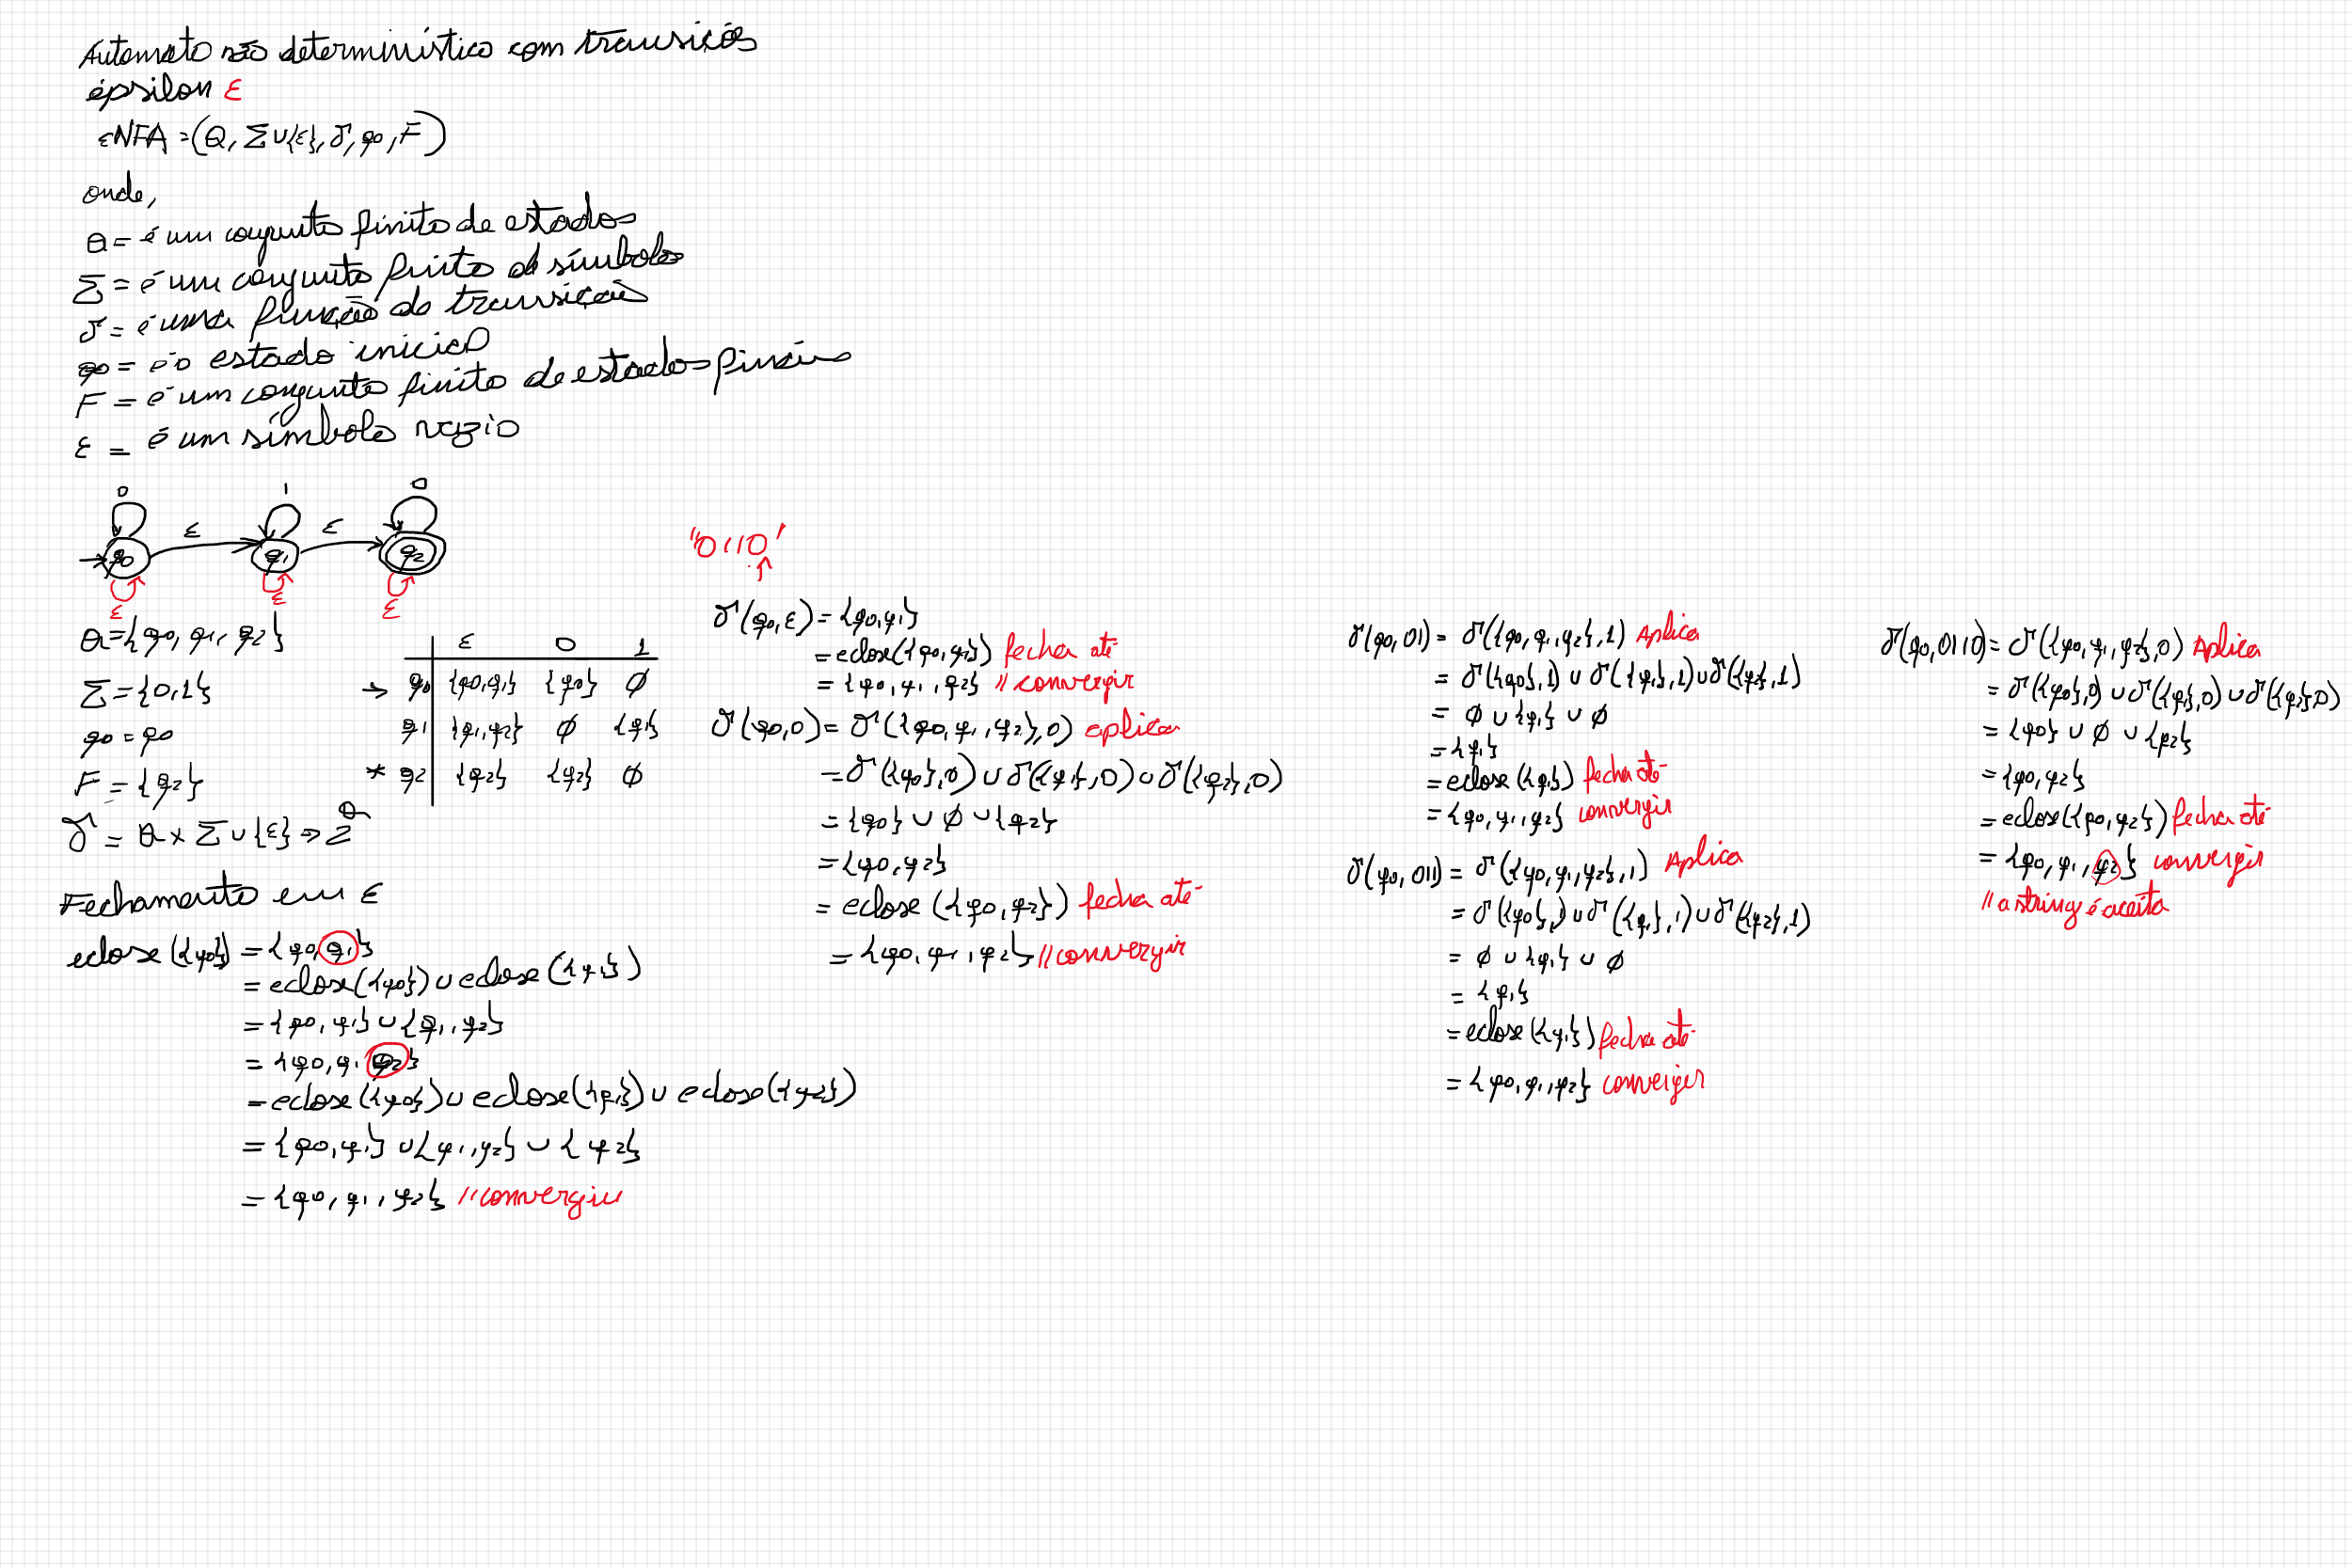 Automato não determinístico com transições
épsilon ε
εNFA = (Q, Σ∪{ε}, δ, q0, F)
onde,
Q = é um conjunto finito de estados
Σ = é um conjunto finito de símbolos
δ = é uma função de transição
q0 = é o estado inicial
F = é um conjunto finito de estados finais
ε = é um símbolo vazio
0 1 0
ε ε
q0 q1 q2
ε ε ε
Q = {q0, q1, q2}
Σ = {0,1}
q0 = q0
F = {q2}
δ = Q × Σ∪{ε} → 2^Q
ε 0 1
→ q0 {q0,q1} {q0} Ø
q1 {q1,q2} Ø {q1}
* q2 {q2} {q2} Ø
Fechamento em ε
eclose({q0}) = {q0, q1}
= eclose({q0}) ∪ eclose({q1})
= {q0, q1} ∪ {q1, q2}
= {q0, q1, q2}
= eclose({q0}) ∪ eclose({q1}) ∪ eclose({q2})
= {q0, q1} ∪ {q1, q2} ∪ {q2}
= {q0, q1, q2} // convergiu
"0110"
↑
δ(q0, ε) = {q0, q1}
= eclose({q0, q1}) fecha até
= {q0, q1, q2} // convergir
δ(q0, 0) = δ({q0, q1, q2}, 0) aplica
= δ({q0}, 0) ∪ δ({q1}, 0) ∪ δ({q2}, 0)
= {q0} ∪ Ø ∪ {q2}
= {q0, q2}
= eclose({q0, q2}) fecha até
= {q0, q1, q2} // convergir
δ(q0, 01) = δ({q0, q1, q2}, 1) Aplica
= δ({q0}, 1) ∪ δ({q1}, 1) ∪ δ({q2}, 1)
= Ø ∪ {q1} ∪ Ø
= {q1}
= eclose({q1}) fecha até
= {q0, q1, q2} convergir
δ(q0, 011) = δ({q0, q1, q2}, 1) Aplica
= δ({q0}, 1) ∪ δ({q1}, 1) ∪ δ({q2}, 1)
= Ø ∪ {q1} ∪ Ø
= {q1}
= eclose({q1}) fecha até
= {q0, q1, q2} convergir
δ(q0, 0110) = δ({q0, q1, q2}, 0) Aplica
= δ({q0}, 0) ∪ δ({q1}, 0) ∪ δ({q2}, 0)
= {q0} ∪ Ø ∪ {q2}
= {q0, q2}
= eclose({q0, q2}) fecha até
= {q0, q1, q2} convergir
// a string é aceita